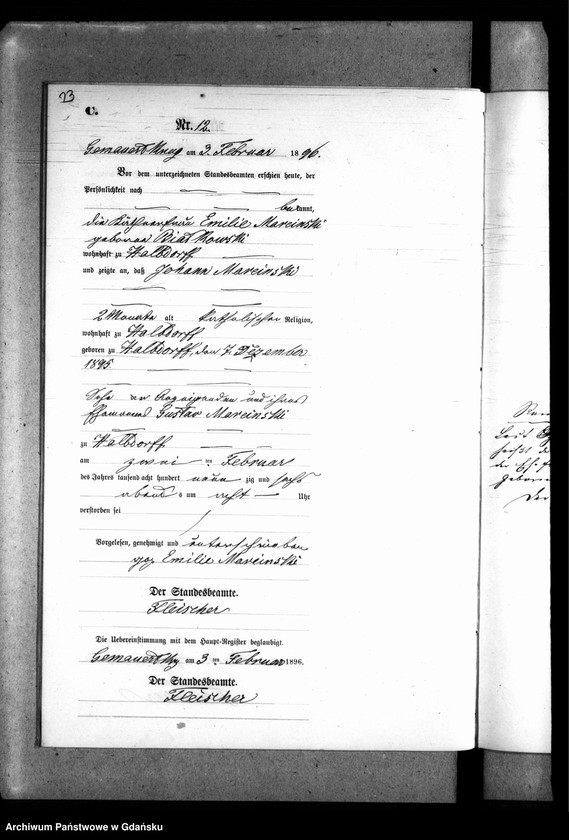 23
C.
Nr. 12.
Gemauert Krug am 3. Februar 1896.
Vor dem unterzeichneten Standesbeamten erschien heute, der
Persönlichkeit nach
bekannt,
die Käthnerfrau Emilie Marcinski
geborene Bialkowski
wohnhaft zu Walddorff
und zeigte an, daß Johann Marcinski
2 Monate alt katholischer Religion,
wohnhaft zu Walddorff
geboren zu Walddorff, den 7. Dezember
1895
Sohn der Anzeigenden und ihres
Ehemannes Gustav Marcinski
zu Walddorff
am zwei ten Februar
des Jahres tausend acht hundert neun zig und sechs
abends um acht Uhr
verstorben sei
Vorgelesen, genehmigt und unterschrieben
gez Emilie Marcinski
Der Standesbeamte.
Fleischer
Die Uebereinstimmung mit dem Haupt-Register beglaubigt.
Gemauert Krg am 3 ten Februar 1896.
Der Standesbeamte.
Fleischer
Archiwum Państwowe w Gdańsku